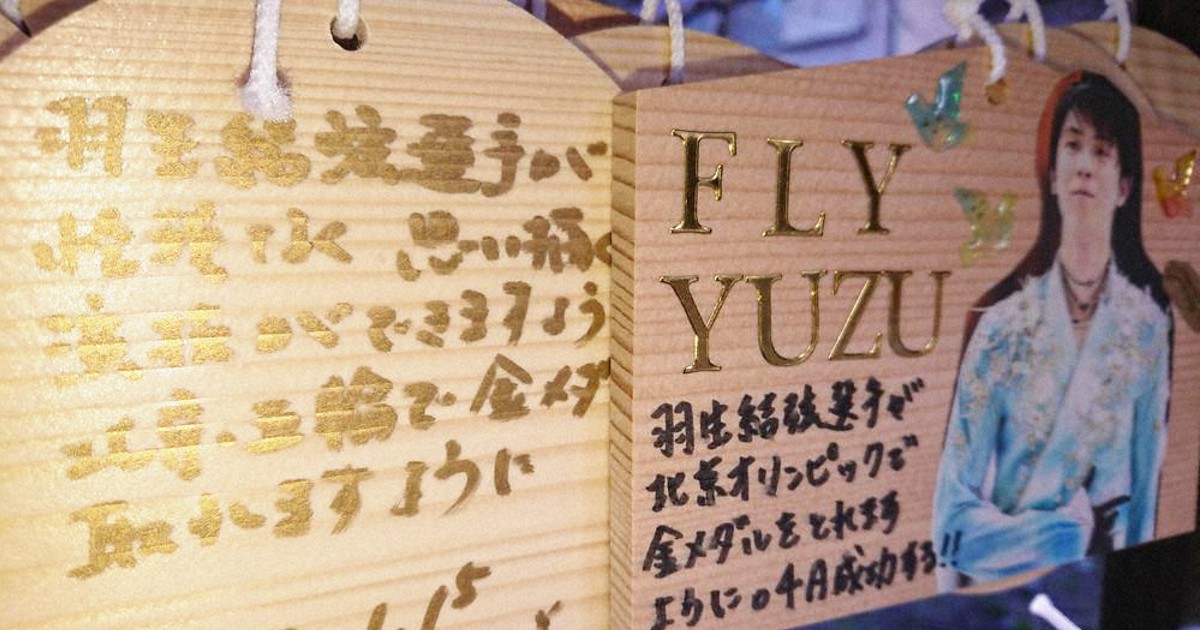 羽生結弦選手が
怪我なく 思い描く
演技ができますよう
北京五輪で金メダ
取れますように
FLY
YUZU
羽生結弦選手が
北京オリンピックで
金メダルをとれます
ように。4A成功する!!